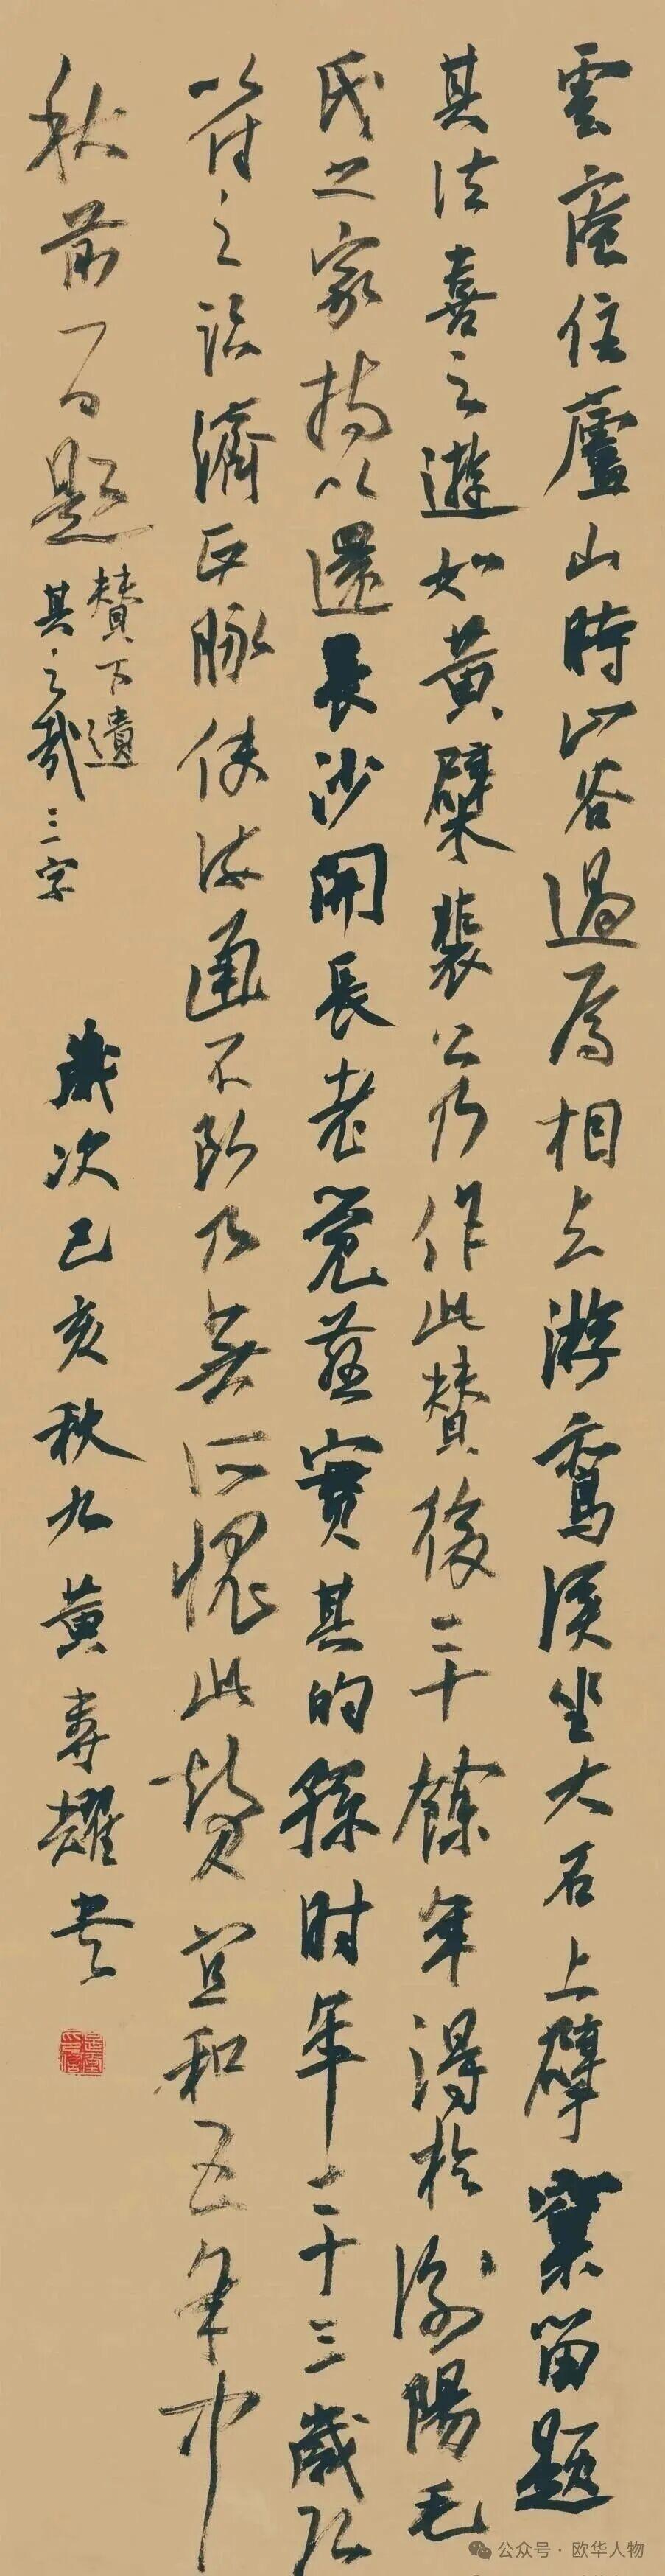 雲庵住廬山時山谷過焉相与游鸞溪坐大石上擘窠留題
其法喜之遊如黃檗裴公乃作此贊後三十餘年得於瀏陽毛
氏之家持以還長沙開長老覺慈實其的孫时年二十三歲
以付之濟正脉使流通不断乃無所愧此贊宣和五年中
秋前一日題
贊下遺
其之哉三字
歲次己亥秋九黃壽耀書
公众号·欧华人物